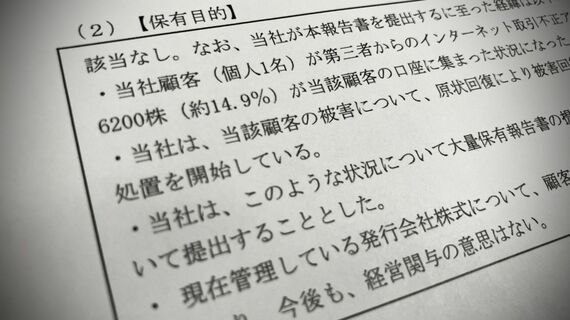 (2)【保有目的】
該当なし。なお、当社が本報告書を提出するに至った経緯は以下
・当社顧客(個人1名)が第三者からのインターネット取引不正ア
6200株(約14.9%)が当該顧客の口座に集まった状況になった
・当社は、当該顧客の被害について、原状回復により被害回
処置を開始している。
・当社は、このような状況について大量保有報告書の提
いて提出することとした。
・現在管理している発行会社株式について、顧客
り、今後も、経営関与の意思はない。